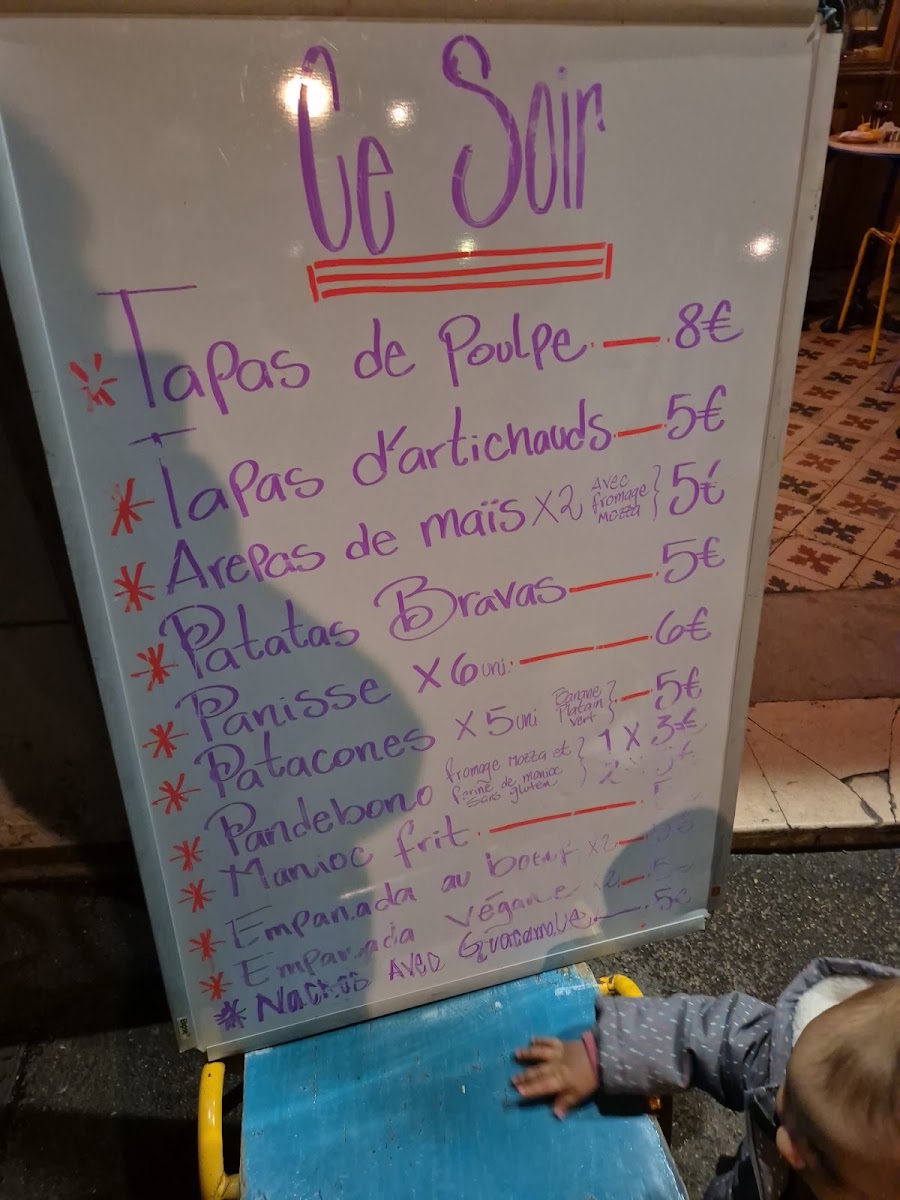 Ce Soir
* Tapas de Poulpe — 8€
* Tapas d'artichauds — 5€
* Arepas de maïs X2 Avec fromage Mozza } 5€
* Patatas Bravas — 5€
* Panisse X 6 uni. — 6€
* Patacones X 5 uni Banane Platain vert } — 5€
* Pandebono fromage Mozza et farine de manioc sans gluten } 1 X 3€
2
* Manioc frit. —
* Empanada au boeuf X2 —
* Empanada végane x2 —
* Nachos Avec Guacamole — 5€